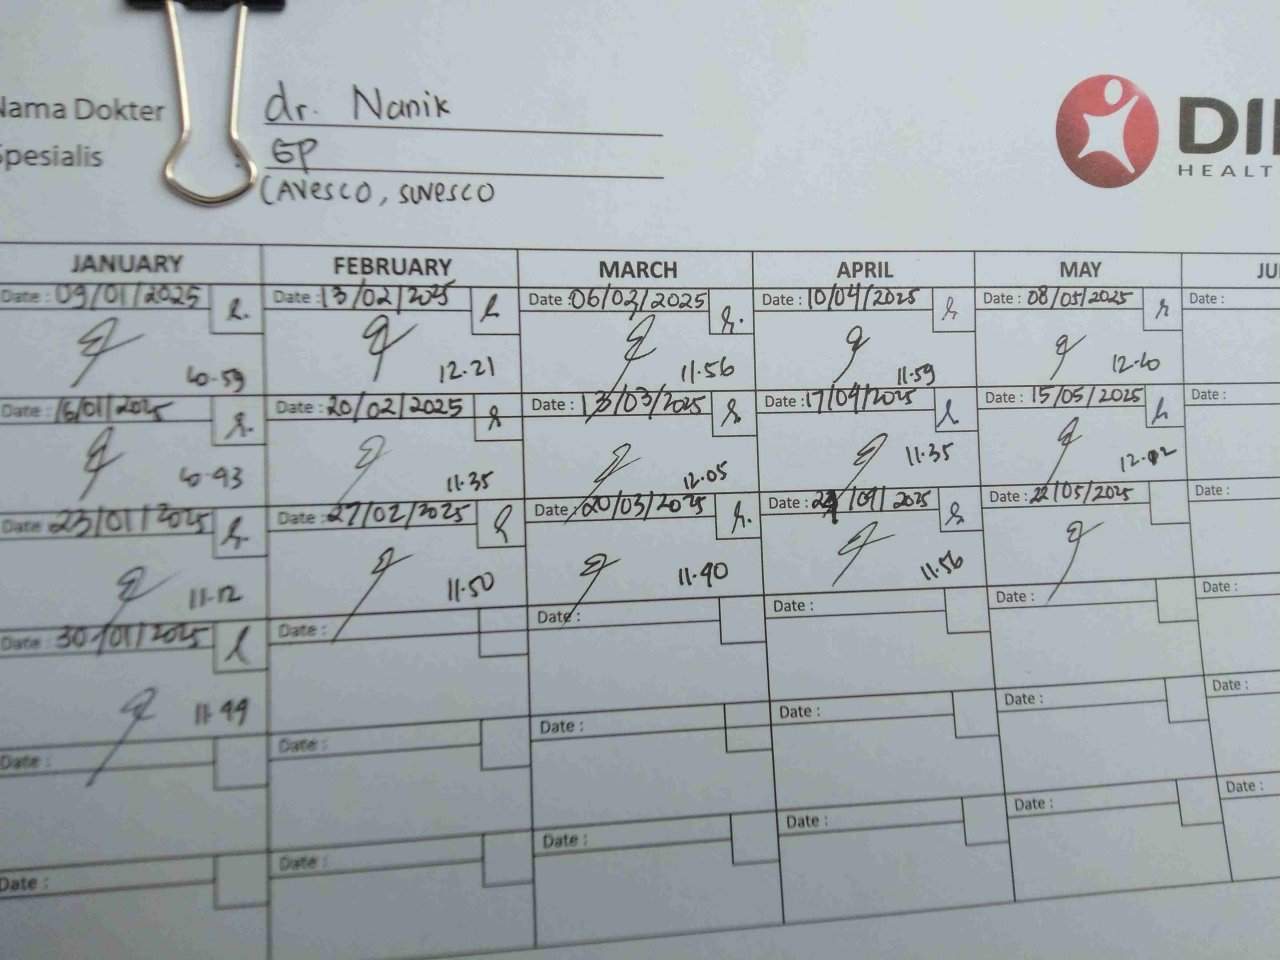 Nama Dokter dr. Nanik
Spesialis : GP
CAVESCO, SUVESCO
DI
HEALT
JANUARY FEBRUARY MARCH APRIL MAY JU
Date : 09/01/2025 Date : 13/02/2025 Date : 06/03/2025 Date : 10/04/2025 Date : 08/05/2025 Date :
10.59 12.21 11.56 11.59 12.10
Date : 16/01/2025 Date : 20/02/2025 Date : 13/03/2025 Date : 17/04/2025 Date : 15/05/2025 Date :
10.43 11.35 12.05 11.35 12.02
Date : 23/01/2025 Date : 27/02/2025 Date : 20/03/2025 Date : 24/04/2025 Date : 22/05/2025 Date :
11.12 11.50 11.40 11.56
Date : 30/01/2025 Date : Date : Date : Date : Date :
11.44
Date : Date : Date : Date : Date : Date :
Date : Date : Date : Date : Date : Date :